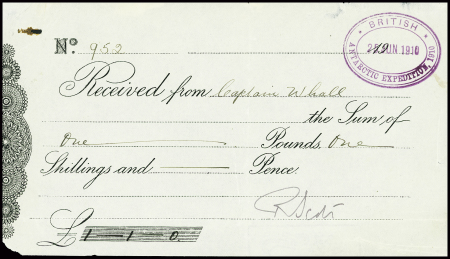 BRITISH
Nº 952
25 JUN 1910
19
ANTARCTIC EXPEDITION, 1910
Received from Captain Whall
the Sum of
One Pounds, One
Shillings and Pence.
RScott
£ 1-1-0